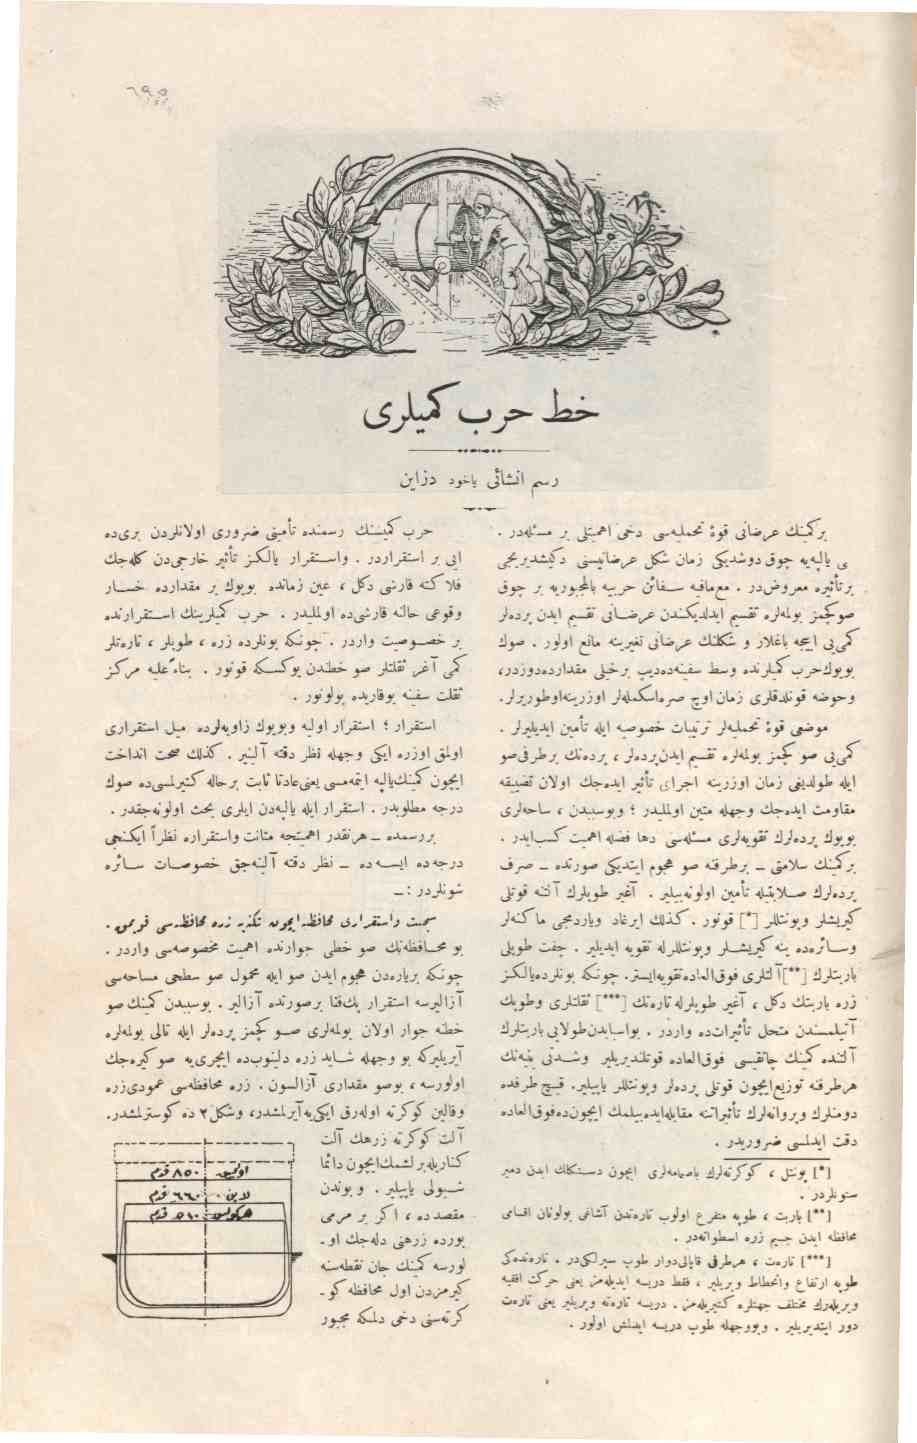 ٦٩٥
خط حرب كمیلری
رسم انشائی یاخود دزاین
بركمینك عرضانی قوۀ تحملیه‌سی دخی اهمیتلی بر مسئله‌در .
یالپه‌یه چوق دوشدیكی زمان شكل عرضانیسنی دكیشدیره‌جی
برتأثیره معروض‌در . مع‌مافیه سفائن حربیه بالمجبوریه بر چوق
صوكچمز بولمه‌لره تقسیم ایدلدیكندن عرضانی تقسیم ایدن پرده‌لر
كمی‌یی اییجه باغلار و شكلنك عرضانی تغیرینه مانع اولور . صوك
بویوك‌حرب كمیلرنده وسط سفینه‌ده‌دیپ برخیلی مقدارده‌دوزدر،
وحوضه قونلدقلری زمان اوچ صره‌اسكمله‌لر اوزرینه‌اوطوریرلر.
موضعی قوۀ تحملیه‌لر ترتیبات خصوصیه ایله تأمین ایدیلیرلر .
كمی‌یی صو كچمز بولمه‌لره تقسیم ایدن‌پرده‌لر ، پرده‌نك برطرفی‌صو
ایله طولدیغی زمان اوزرینه اجرای تأثیر ایده‌جك اولان تضییقه
مقاومت ایده‌جك وجهله متین اولملیدر ؛ وبوسببدن ، ساحه‌لری
بویوك پرده‌لرك تقویه‌لری مسئله‌سی دها فضله اهمیت كسب‌ایدر .
بركمینك سلامتی ـ برطرفنه صو هجوم ایتدیكی صورتده ـ صرف
پرده‌لرك صلابتیله تأمین اولونه‌بیلیر . آغیر طوپلرك آلتنه قوتلی
كیریشلر وپونتللر [*] قونور . كذلك ایرغاد ویاردمجی ماكنه‌لر
وسائره‌ده ینه كیریشلر وپونتللرله تقویه ایدیلیر . چفت طوپلی
باربتلرك [**] آلتلری فوق‌العاده تقویه‌ایستر. چونكه بونلرده‌یالكز
زره باربتك دكل ، آغیر طوپلرله تاره‌تك [***] ثقلتلری وطوپك
آتیلمسندن متحل تأثیرات‌ده واردر . بواسبابدن‌طولایی باربتلرك
آلتنده كمینك چاتقیسی فوق‌العاده قوتلندیریلیر وشدتی بنیه‌نك
هرطرفنه توزیع‌ایچون قوتلی پرده‌لر وپونتللر یاپیلیر. قیچ طرفده
دومنلرك وپروانه‌لرك تأثیراتنه مقابله‌ایده‌بیلمك ایچون‌ده‌فوق‌العاده
دقت ایدلمسی ضروریدر .
[*] پونتل ، كوكرته‌لرك باصیامه‌لری ایچون دستكلك ایدن دمیر
ستونلردر .
[**] باربت ، طوپه متفرع اولوب تاره‌تدن آشاغی بولونان اقسامی
محافظه ایدن جسیم زره اسطوانه‌در .
[***] تاره‌ت ، هرطرفی قاپالی‌دوار طوپ سپرلكی‌در . تاره‌تده‌كی
طوپه ارتفاع وانحطاط ویریلیر ، فقط دریسه ایدیله‌مز یعنی حركت افقیه
ویریله‌رك مختلف جهتلره كتیریله‌مز . دریسه تاره‌ته ویریلیر یعنی تاره‌ت
دور ایتدیریلیر . وبووجهله طوپ دریسه ایدلمش اولور .
حرب كمیسنك رسمنده تأمینی ضروری اولانلردن بری‌ده
ایی بر استقراردر . واستقرار یالكز تأثیر خارجی‌دن كله‌جك
فلاكته قارشی دكل ، عین زمانده بویوك بر مقدارده خسار
وقوعی حالنه قارشی‌ده اولملیدر . حرب كمیلرینك استقرارنده
بر خصوصیت واردر . چونكه بونلرده زره ، طوپلر ، تاره‌تلر
كمی آغر ثقلتلر صو خطندن یوكسكه قونور . بناءً علیه مركز
ثقلت سفینه یوقاریده بولونور .
استقرار ؛ استقرار اولیه وبویوك زاویه‌لرده میل استقراری
اولمق اوزره ایكی وجهله نظر دقته آلینیر . كذلك صحت انداخت
ایچون كمینك‌یالپه ایتمه‌مسی یعنی‌عادتا ثابت برحاله كتیرلمسی‌ده صوك
درجه مطلوبدر. استقرار ایله یالپه‌دن ایلری بحث اولونه‌جقدر .
بررسمده ـ هرنقدر اهمیتجه متانت واستقراره نظراً ایكنجی
درجه‌ده ایسه‌ده ـ نظر دقته آلینه‌جق خصوصات سائره
شونلردر : ـ
بو محافظه‌نك صو خطی جوارنده اهمیت مخصوصه‌سی واردر .
چونكه بریاره‌دن هجوم ایدن صو ایله محمول صو سطحی مساحه‌سی
آزالیرسه استقرار پك‌فنا برصورتده آزالیر . بوسببدن كمینك صو
خطنه جوار اولان بولمه‌لری صو كچمز پرده‌لر ایله تالی بولمه‌لره
آیریلیركه بو وجهله شاید زره دلینوب‌ده ایچری‌یه صو كیره‌جك
اولورسه ، بوصو مقداری آزالسون . زره محافظه‌سی عمودی‌زره
وقالین كوكرته اوله‌رق ایكی‌یه‌آیرلمشدر، وشكل ۲ ده كوسترلمشدر.
آلت كوكرته زرهك آلت
كناریله‌برلشمك‌ایچون دائما
شیولی یاپیلیر . و بوندن
مقصدده ، اكر بر مرمی
بورده زرهنی دله‌جك او ـ
لورسه كمینك جان نقطه‌سنه
كیرمزدن اول محافظه كو ـ
كرته‌سنی دخی دلمكه مجبور
اولمپیق ۸۵۰ قدم
لاین ٦٦٠ قدم
هركولس ٥١٠ قدم